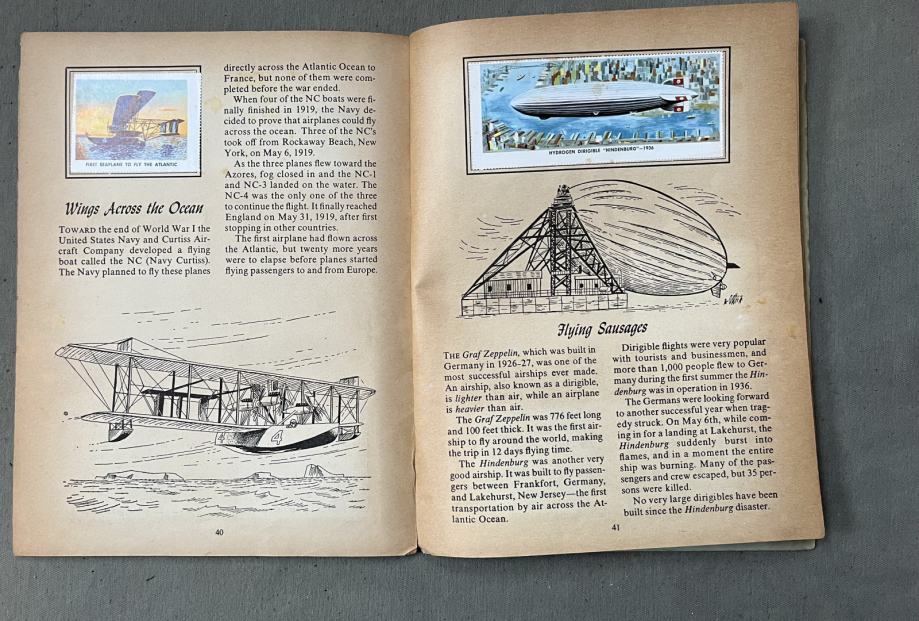 FIRST SEAPLANE TO FLY THE ATLANTIC
Wings Across the Ocean
TOWARD the end of World War I the
United States Navy and Curtiss Air-
craft Company developed a flying
boat called the NC (Navy Curtiss).
The Navy planned to fly these planes
directly across the Atlantic Ocean to
France, but none of them were com-
pleted before the war ended.
When four of the NC boats were fi-
nally finished in 1919, the Navy de-
cided to prove that airplanes could fly
across the ocean. Three of the NC's
took off from Rockaway Beach, New
York, on May 6, 1919.
As the three planes flew toward the
Azores, fog closed in and the NC-1
and NC-3 landed on the water. The
NC-4 was the only one of the three
to continue the flight. It finally reached
England on May 31, 1919, after first
stopping in other countries.
The first airplane had flown across
the Atlantic, but twenty more years
were to elapse before planes started
flying passengers to and from Europe.
4
40
HYDROGEN DIRIGIBLE "HINDENBURG"—1936
Flying Sausages
THE Graf Zeppelin, which was built in
Germany in 1926-27, was one of the
most successful airships ever made.
An airship, also known as a dirigible,
is lighter than air, while an airplane
is heavier than air.
The Graf Zeppelin was 776 feet long
and 100 feet thick. It was the first air-
ship to fly around the world, making
the trip in 12 days flying time.
The Hindenburg was another very
good airship. It was built to fly passen-
gers between Frankfort, Germany,
and Lakehurst, New Jersey—the first
transportation by air across the At-
lantic Ocean.
Dirigible flights were very popular
with tourists and businessmen, and
more than 1,000 people flew to Ger-
many during the first summer the Hin-
denburg was in operation in 1936.
The Germans were looking forward
to another successful year when trag-
edy struck. On May 6th, while com-
ing in for a landing at Lakehurst, the
Hindenburg suddenly burst into
flames, and in a moment the entire
ship was burning. Many of the pas-
sengers and crew escaped, but 35 per-
sons were killed.
No very large dirigibles have been
built since the Hindenburg disaster.
41